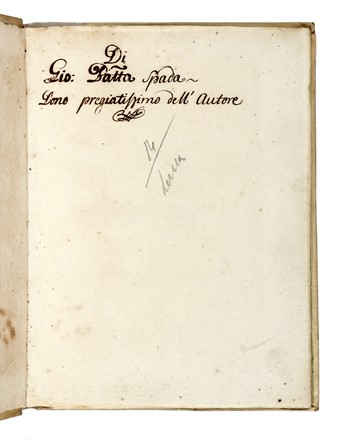 Di
Gio: Batta Spada
Dono pregiatissimo dell' Autore
14
Lucca